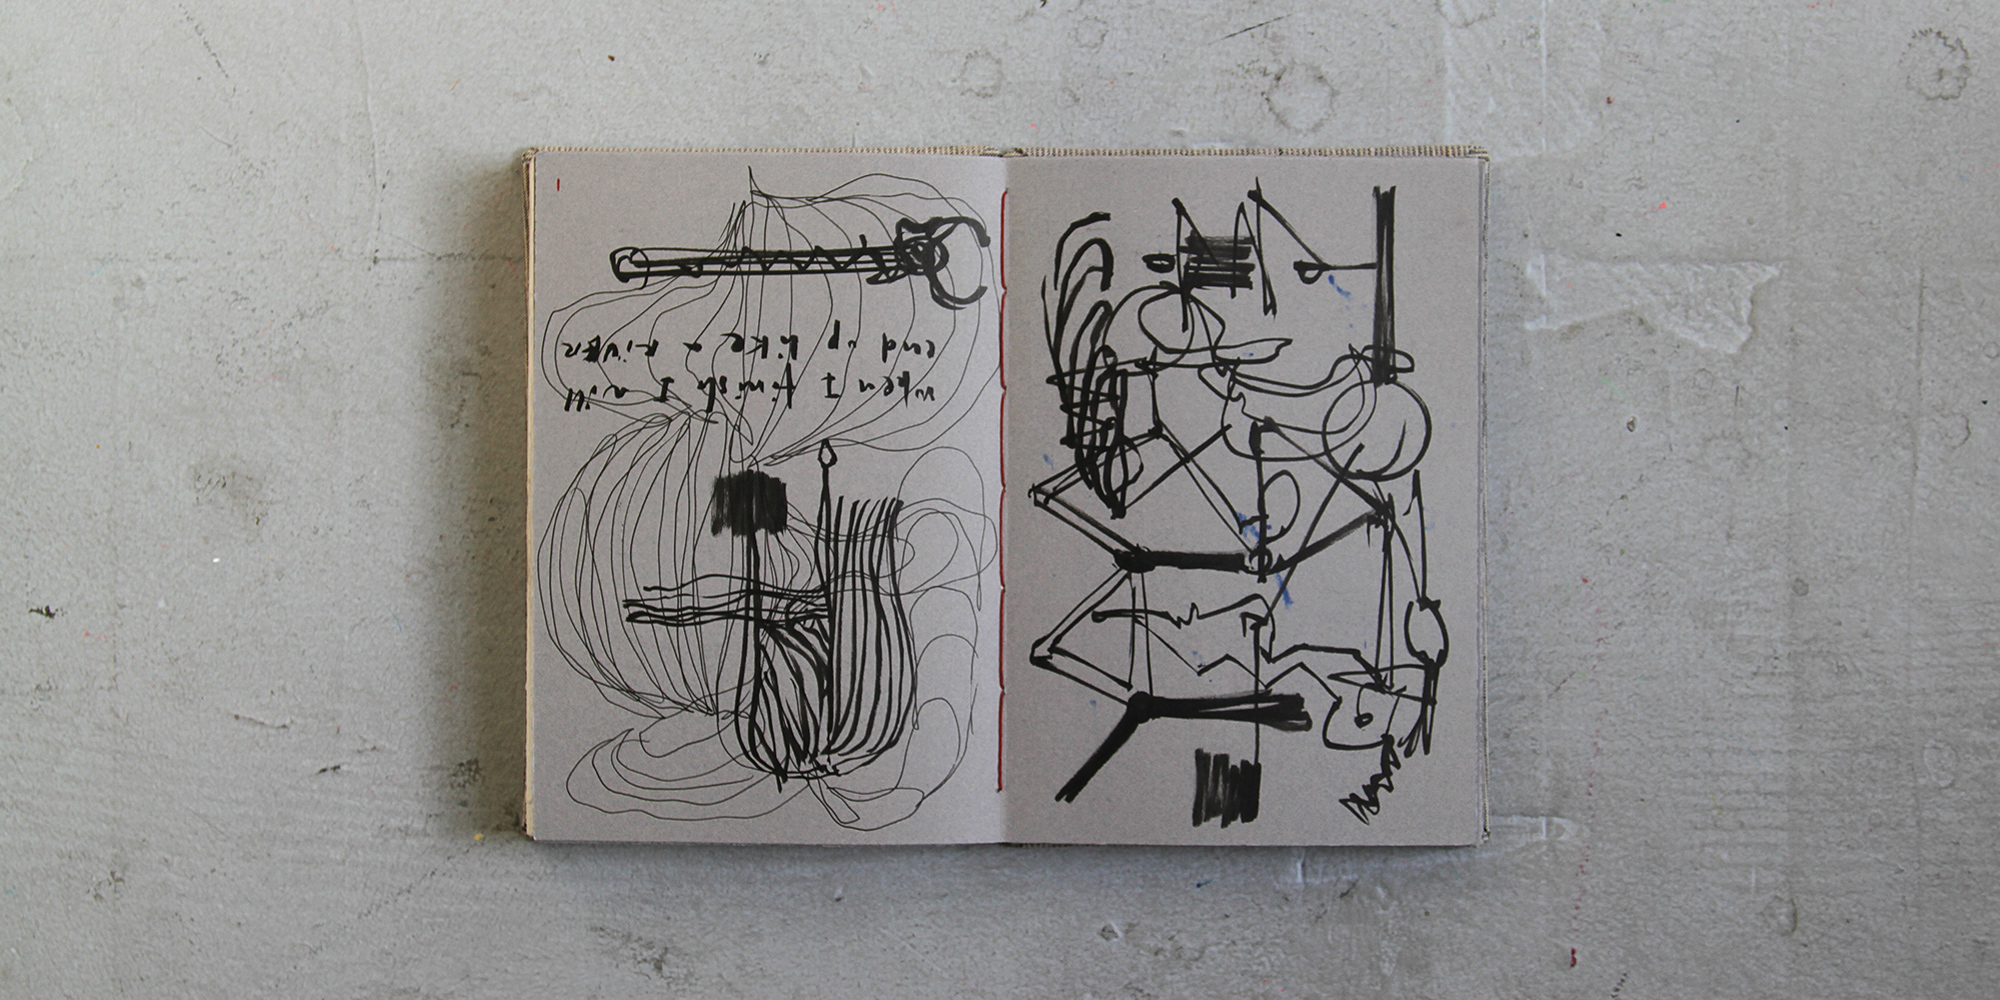 when I finish I will
end up like a RiVER